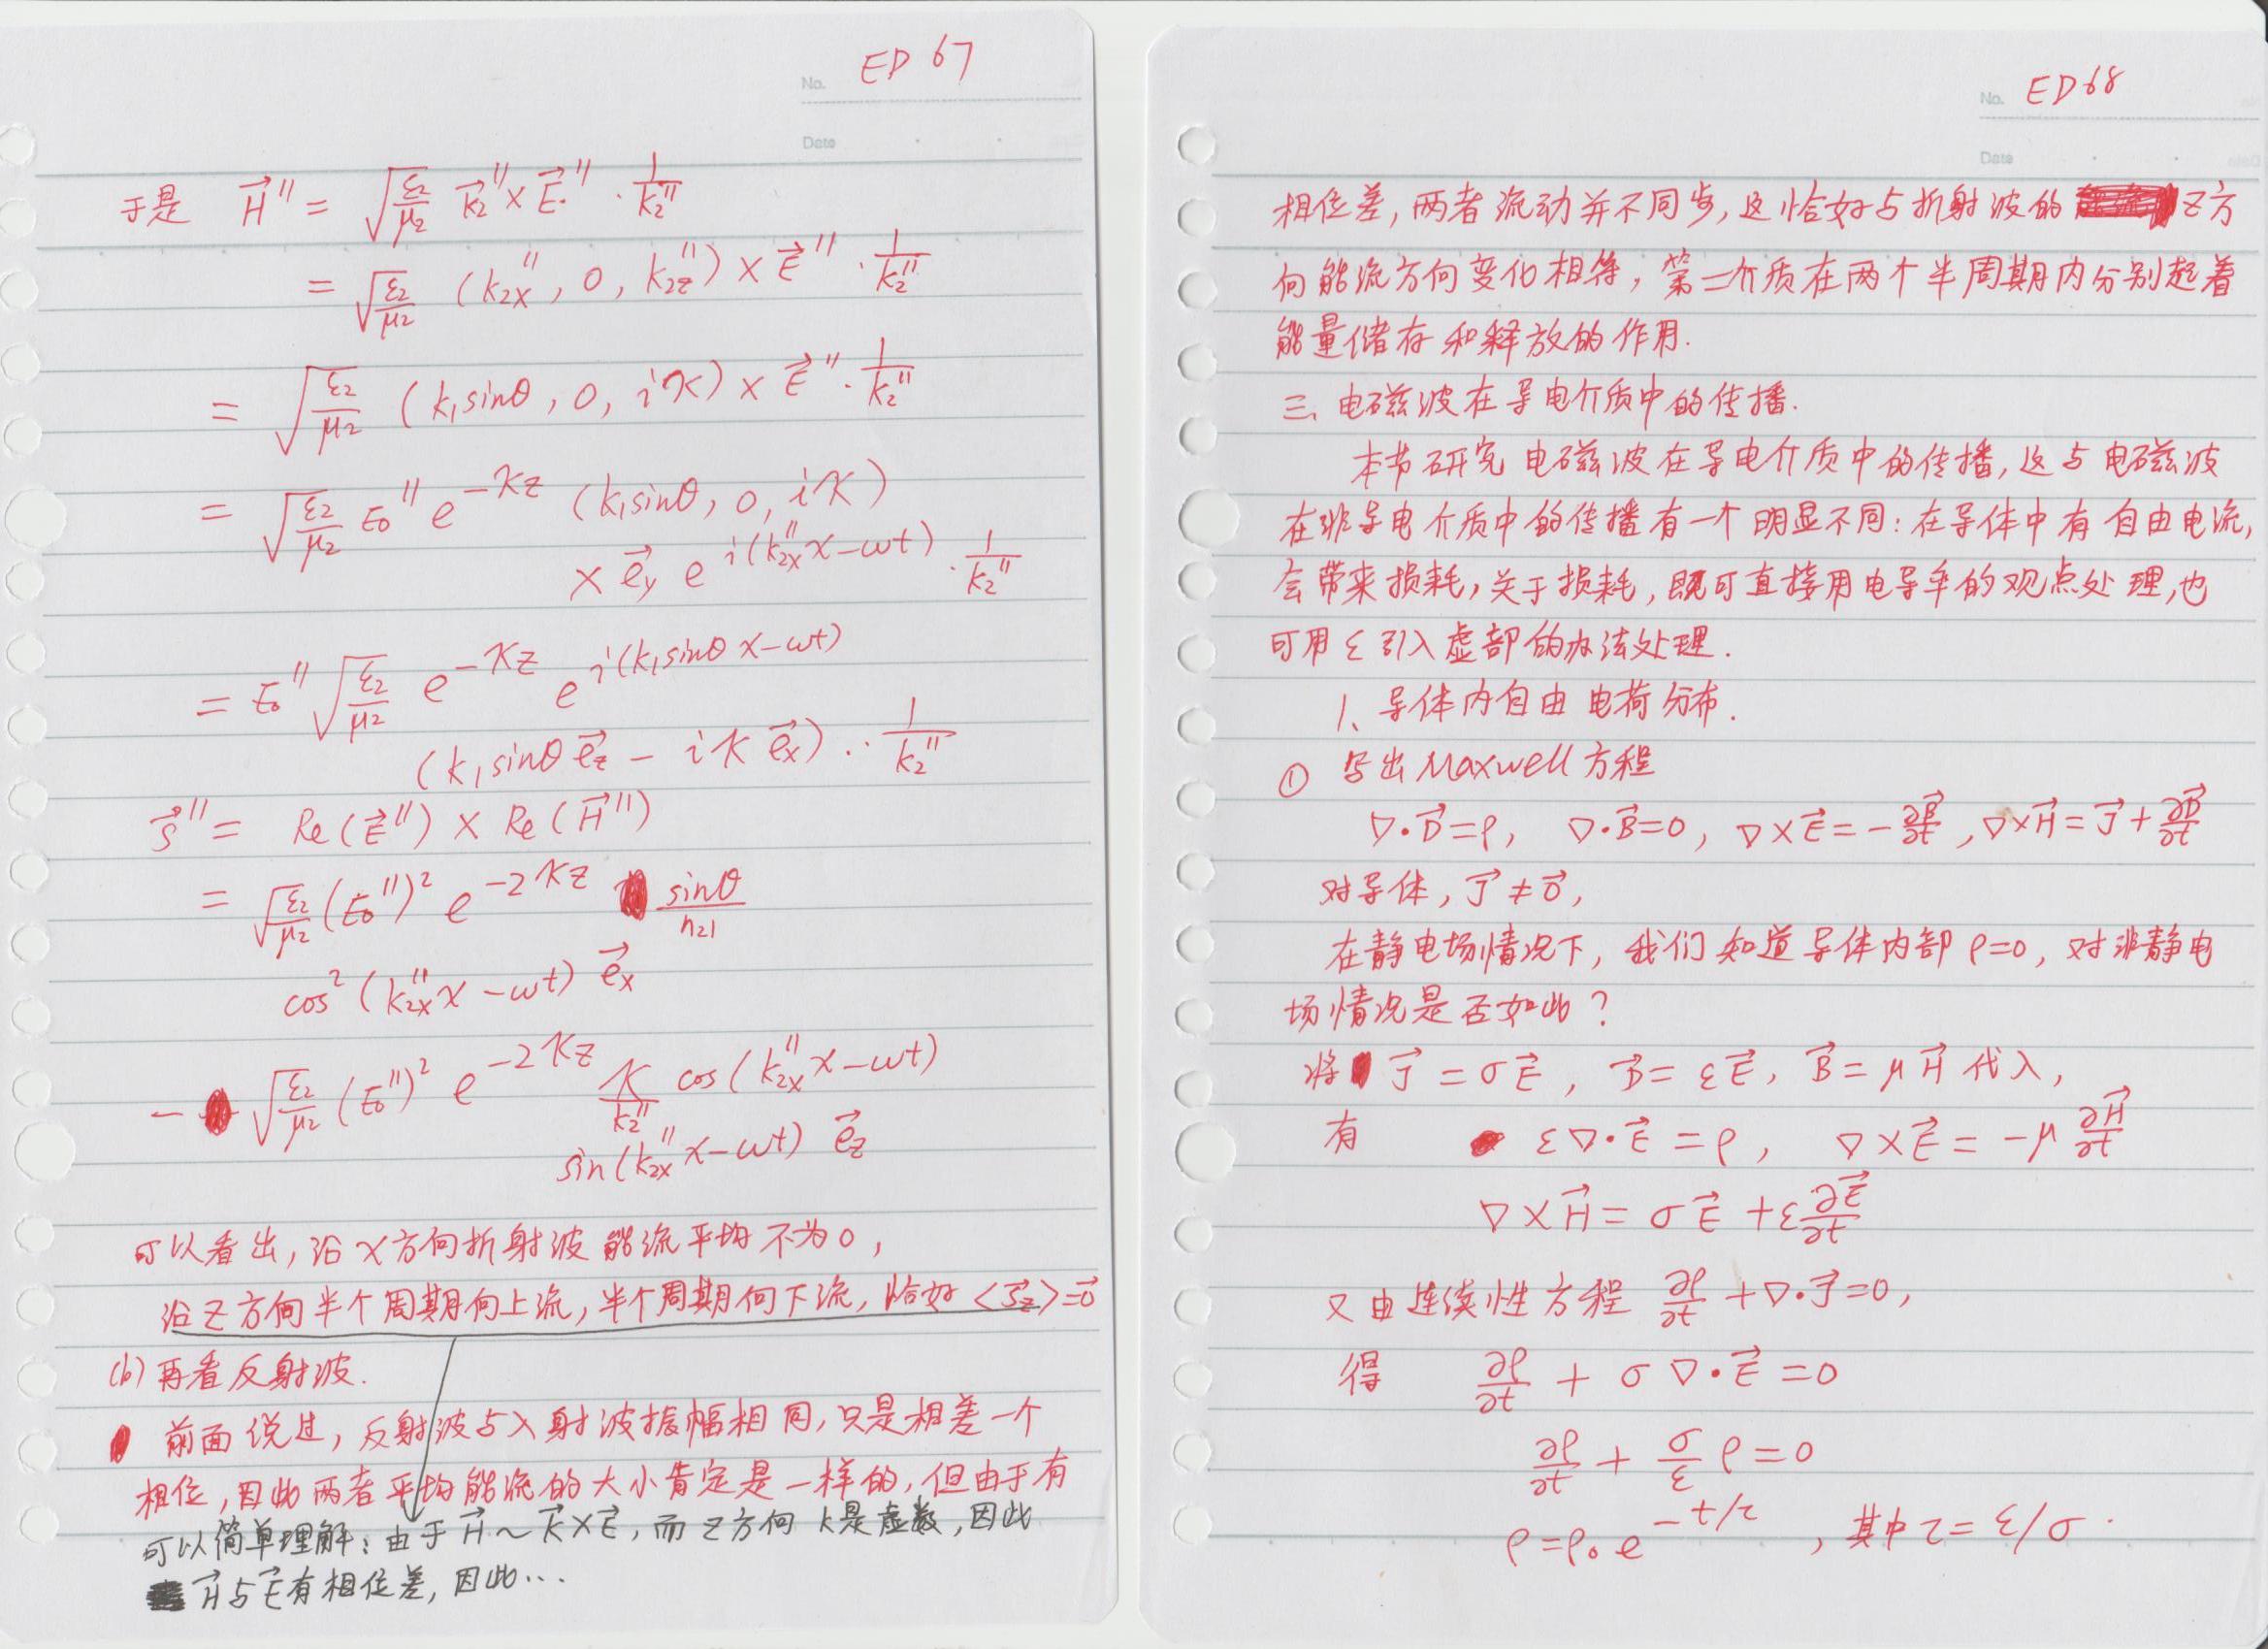 No. ED 67
Date
于是 H⃗'' = √(ε₂/μ₂) k⃗₂'' × E⃗'' · 1/k₂''
= √(ε₂/μ₂) (k₂ₓ'', 0, k₂z'') × E⃗'' · 1/k₂''
= √(ε₂/μ₂) (k₁sinθ, 0, iκ) × E⃗'' · 1/k₂''
= √(ε₂/μ₂) E₀'' e^(-κz) (k₁sinθ, 0, iκ)
× e⃗y e^(i(k₂ₓ''x-ωt)) · 1/k₂''
= E₀'' √(ε₂/μ₂) e^(-κz) e^(i(k₁sinθ x-ωt))
(k₁sinθ e⃗z - iκ e⃗x) · · 1/k₂''
S⃗'' = Re(E⃗'') × Re(H⃗'')
= √(ε₂/μ₂) (E₀'')² e^(-2κz) sinθ/n₂₁
cos²(k₂ₓ''x-ωt) e⃗x
- √(ε₂/μ₂) (E₀'')² e^(-2κz) κ/k₂'' cos(k₂ₓ''x-ωt)
sin(k₂ₓ''x-ωt) e⃗z
可以看出,沿x方向折射波能流平均不为0,
沿z方向半个周期向上流,半个周期向下流,恰好〈S⃗z〉=0⃗
(b) 再看反射波.
前面说过,反射波与入射波振幅相同,只是相差一个
相位,因此两者平均能流的大小肯定是一样的,但由于有
可以简单理解:由于H⃗~k⃗×E⃗,而z方向k是虚数,因此
H⃗与E⃗有相位差,因此…
No. ED 68
Date
相位差,两者流动并不同步,这恰好与折射波的z方
向能流方向变化相符,第二介质在两个半周期内分别起着
能量储存和释放的作用.
三、电磁波在导电介质中的传播.
本节研究电磁波在导电介质中的传播,这与电磁波
在非导电介质中的传播有一个明显不同:在导体中有自由电流,
会带来损耗,关于损耗,既可直接用电导率的观点处理,也
可用ε引入虚部的办法处理.
1、导体内自由电荷分布.
① 写出Maxwell方程
∇·D⃗=ρ, ∇·B⃗=0, ∇×E⃗=-∂B⃗/∂t, ∇×H⃗=J⃗+∂D⃗/∂t
对导体, J⃗≠0⃗,
在静电场情况下,我们知道导体内部ρ=0,对非静电
场情况是否如此?
将 J⃗=σE⃗, D⃗=εE⃗, B⃗=μH⃗代入,
有 ε∇·E⃗=ρ, ∇×E⃗=-μ ∂H⃗/∂t
∇×H⃗=σE⃗+ε∂E⃗/∂t
又由连续性方程 ∂ρ/∂t+∇·J⃗=0,
得 ∂ρ/∂t + σ∇·E⃗=0
∂ρ/∂t + σ/ε ρ=0
ρ=ρ₀e^(-t/τ), 其中τ=ε/σ.